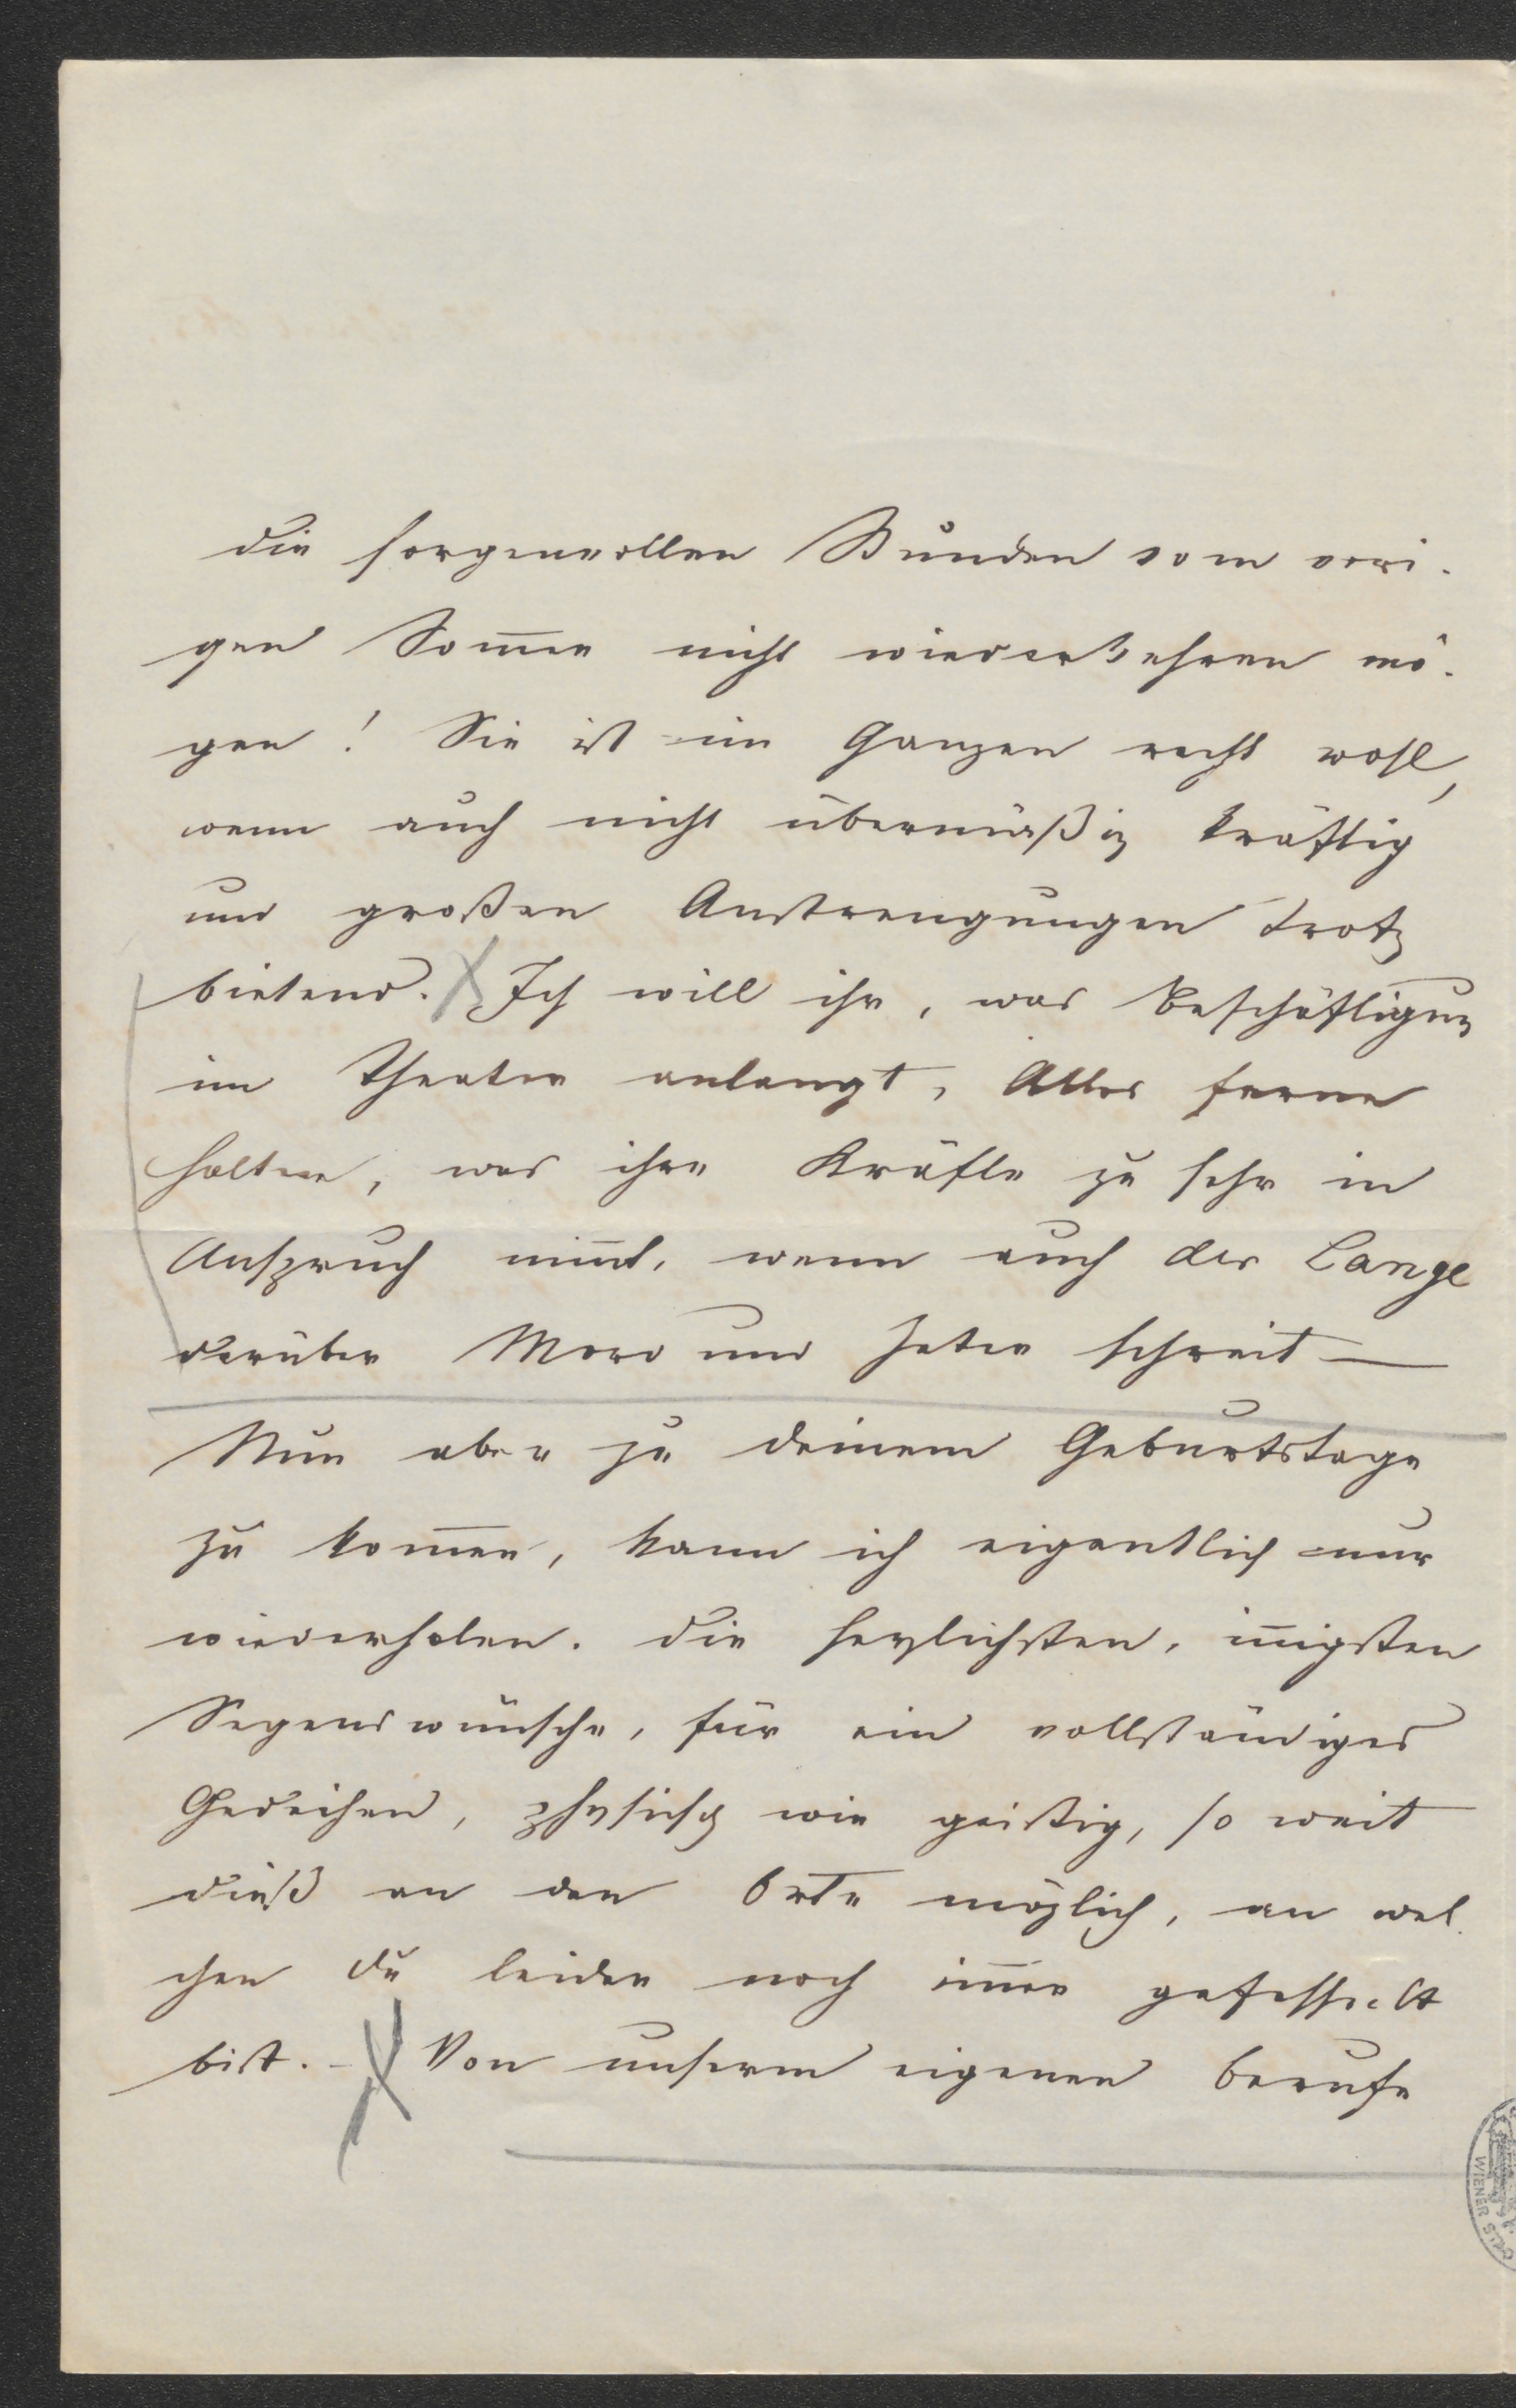 die sorgenvollen Stunden vom vori-
gen Som̅er nicht wiederkehren mö-
gen! Sie ist im Ganzen recht wohl,
wenn auch nicht übermäßig kräftig
und großen Anstrengungen trotz
bietend. Ich will ihr, was Beschäftigung
im Theater anlangt, Alles ferne
halten, was ihre Kräfte zu sehr in
Anspruch nim̅t, wenn auch der Lange
darüber Mord und Zeter schreit —
Nun aber zu deinem Geburtstage
zu kom̅en, kann ich eigentlich nur
wiederholen. Die herzlichsten, in̅igsten
Segenswünsche, für ein vollständiges
Gedeihen, physisch wie geistig, so weit
dieß an dem Orte möglich, an wel-
chen du leider noch im̅er gefesselt
bist. – Von unserem eigenen Berufe
WIENER